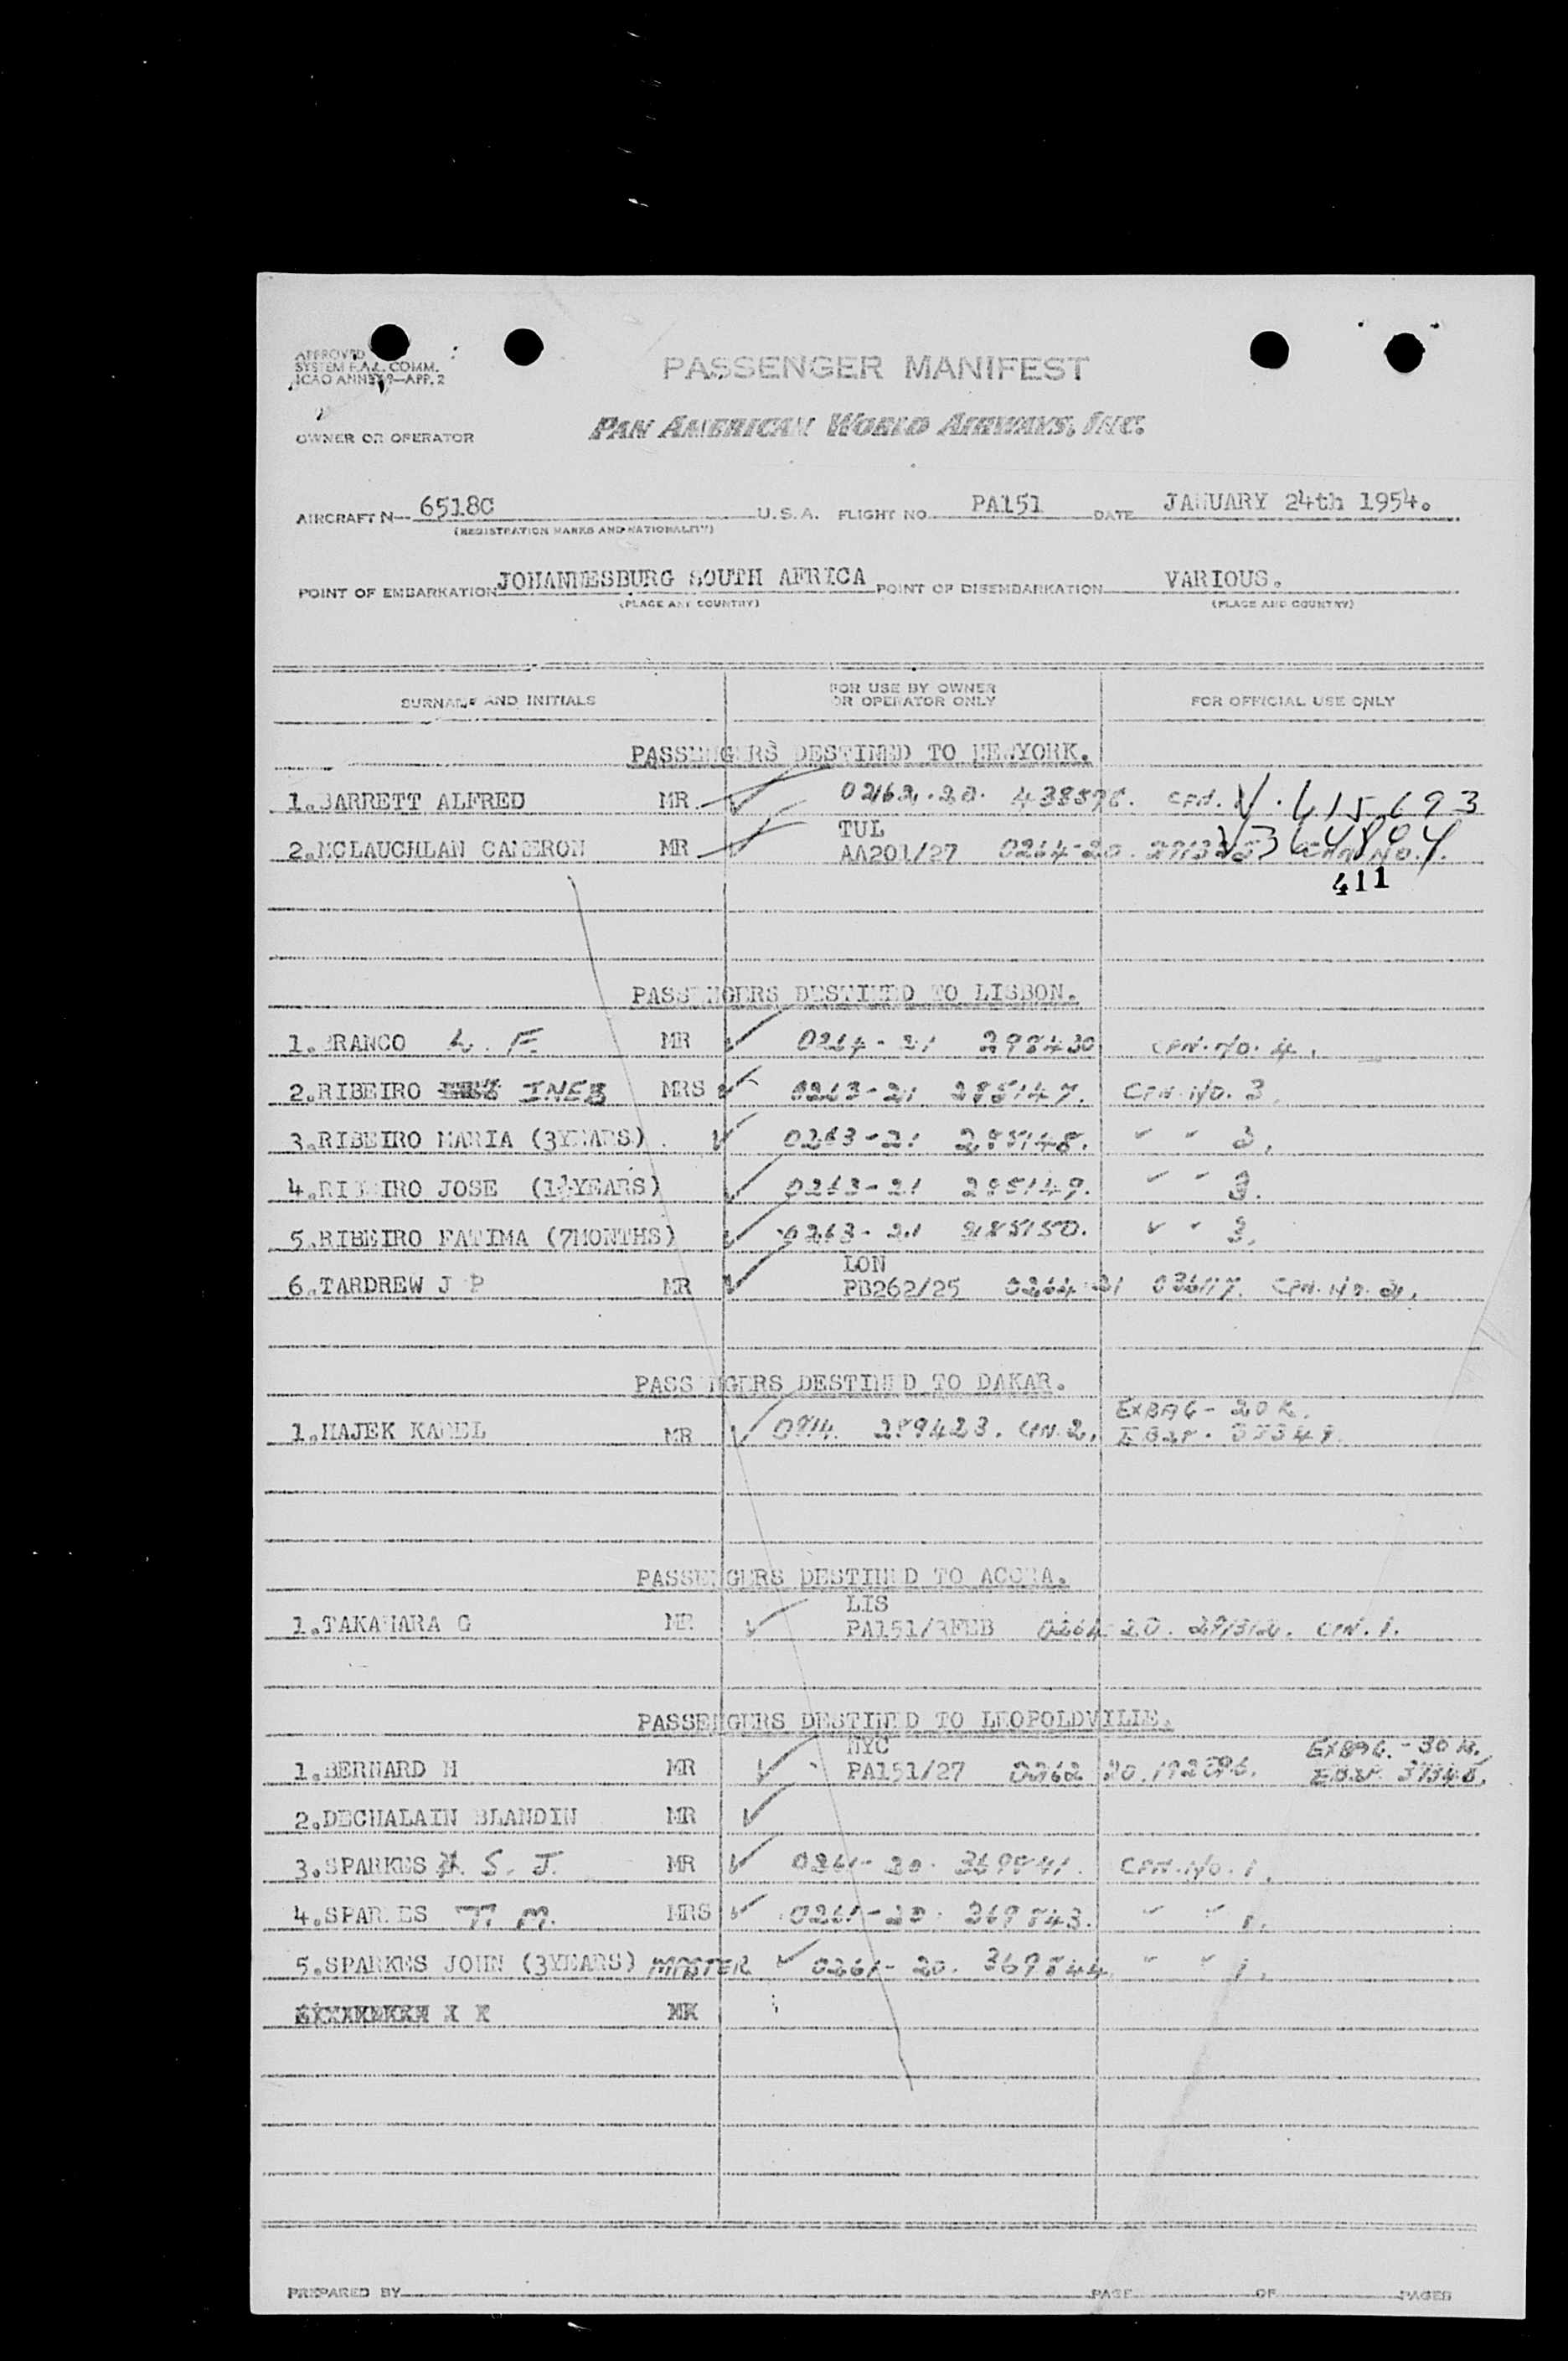 APPROVED
SYSTEM F.A.L. COMM.
ICAO ANNEX 9—APP. 2
PASSENGER MANIFEST
OWNER OR OPERATOR
PAN AMERICAN WORLD AIRWAYS, INC.
AIRCRAFT N— 6518C U.S.A. FLIGHT NO. PA151 DATE JANUARY 24th 1954.
(REGISTRATION MARKS AND NATIONALITY)
POINT OF EMBARKATION JOHANNESBURG SOUTH AFRICA POINT OF DISEMBARKATION VARIOUS.
(PLACE AND COUNTRY) (PLACE AND COUNTRY)
SURNAME AND INITIALS FOR USE BY OWNER OR OPERATOR ONLY FOR OFFICIAL USE ONLY
PASSENGERS DESTINED TO NEWYORK.
1.BARRETT ALFRED MR 0262.20. CPN. V.615693
TUL
2.MCLAUCHLAN CAMERON MR AA201/27 0264-20. CPN NO.
411
PASSENGERS DESTINED TO LISBON.
1.BRANCO L. F. MR 0264-21 298430 CPN.NO. 4.
2.RIBEIRO INES MRS 0263-21 285147. CPN.NO. 3.
3.RIBEIRO MARIA (3YEARS). 0263-21 285148. " " 3.
4.RIBEIRO JOSE (1½YEARS) 0263-21 285149. " " 3.
5.RIBEIRO FATIMA (7MONTHS) 0263-21 285150. " " 3.
LON
6.TARDREW J P MR PB262/25 0264-21 CPN.NO.
PASSENGERS DESTINED TO DAKAR.
EXBAG - 20 K.
1.HAJEK KAREL MR 289423. CPN. 2.
PASSENGERS DESTINED TO ACCRA.
LIS
1.TAKAHARA G MR PA151/3FEB 0264 20. CPN. 1.
PASSENGERS DESTINED TO LEOPOLDVILLE.
NYC EXBAG. - 30 K.
1.BERNARD H MR PA151/27 0262 20.
2.DECHALAIN BLANDIN MR
3.SPARKES S. J. MR 0261-20. 369841. CPN.NO. 1.
4.SPARKES T. M. MRS 0261-20. 369843. " " 1.
5.SPARKES JOHN (3YEARS) MASTER 0261-20. 369844 " " 1.
MR
PREPARED BY PAGE OF PAGES